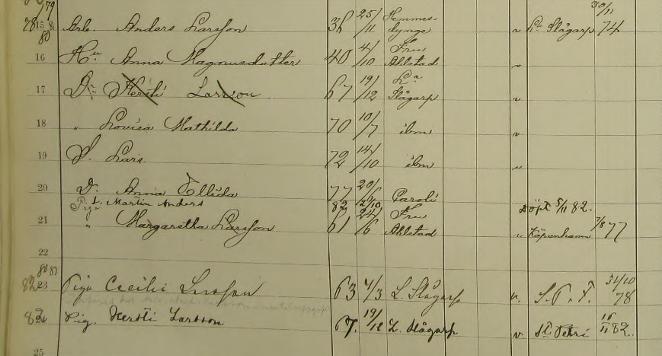 79 30/11
78 15 81 Arb. Anders Larsson 38 25/11 Hemmes-
80 dynge " St Slågarp 74
16 Hu Anna Magnusdotter 40 4/10 Fru
Alstad "
17 Dr Kersti Larsson 67 19/12 La
Slågarp "
18 " Lovisa Mathilda 70 10/7 ibm "
19 S. Lars 72 14/10 ibm "
20 Dr Anna Ellida 77 20/ Caroli
Martin Anders 82 döpt 5/11 82.
21 Pig. " Margaretha Larsson 61 24/6 Fru
Alstad " Köpenhamn 7/8 77
22
80 81
82 23 Piga Cecilia 63 4/3 L. Slågarp " S. P. F. 31/10 78
82 Pig. Kersti Larsson 67. 19/12 L. Slågarp v St. Petri 16/11 82.
25